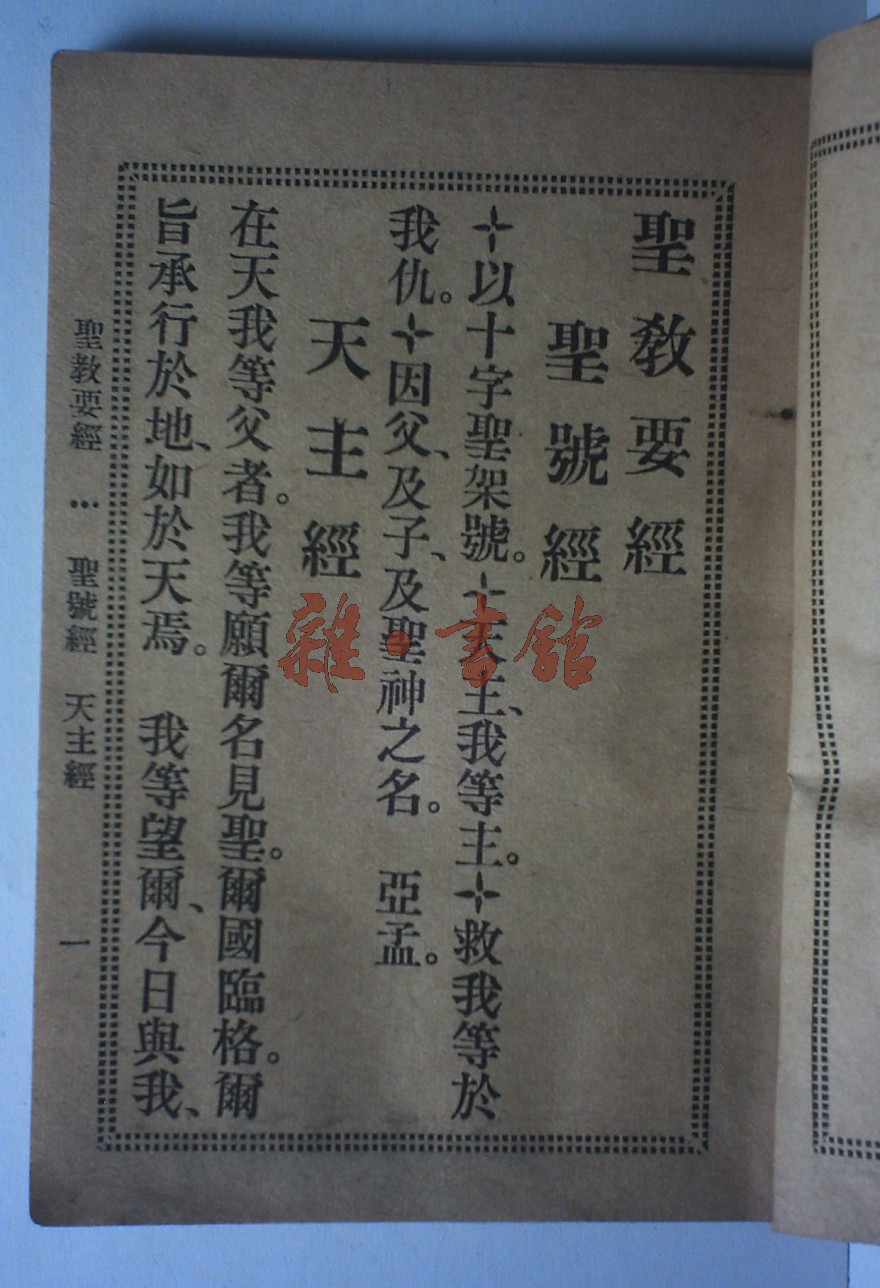 聖教要經
聖號經
✢以十字聖架號。✢天主、我等主。✢救我等於
我仇。✢因父、及子、及聖神之名。　亞孟。
天主經
在天我等父者。我等願爾名見聖。爾國臨格。爾
旨承行於地、如於天焉。　我等望爾、今日與我、
聖教要經 … 聖號經 天主經 一
雜·書館